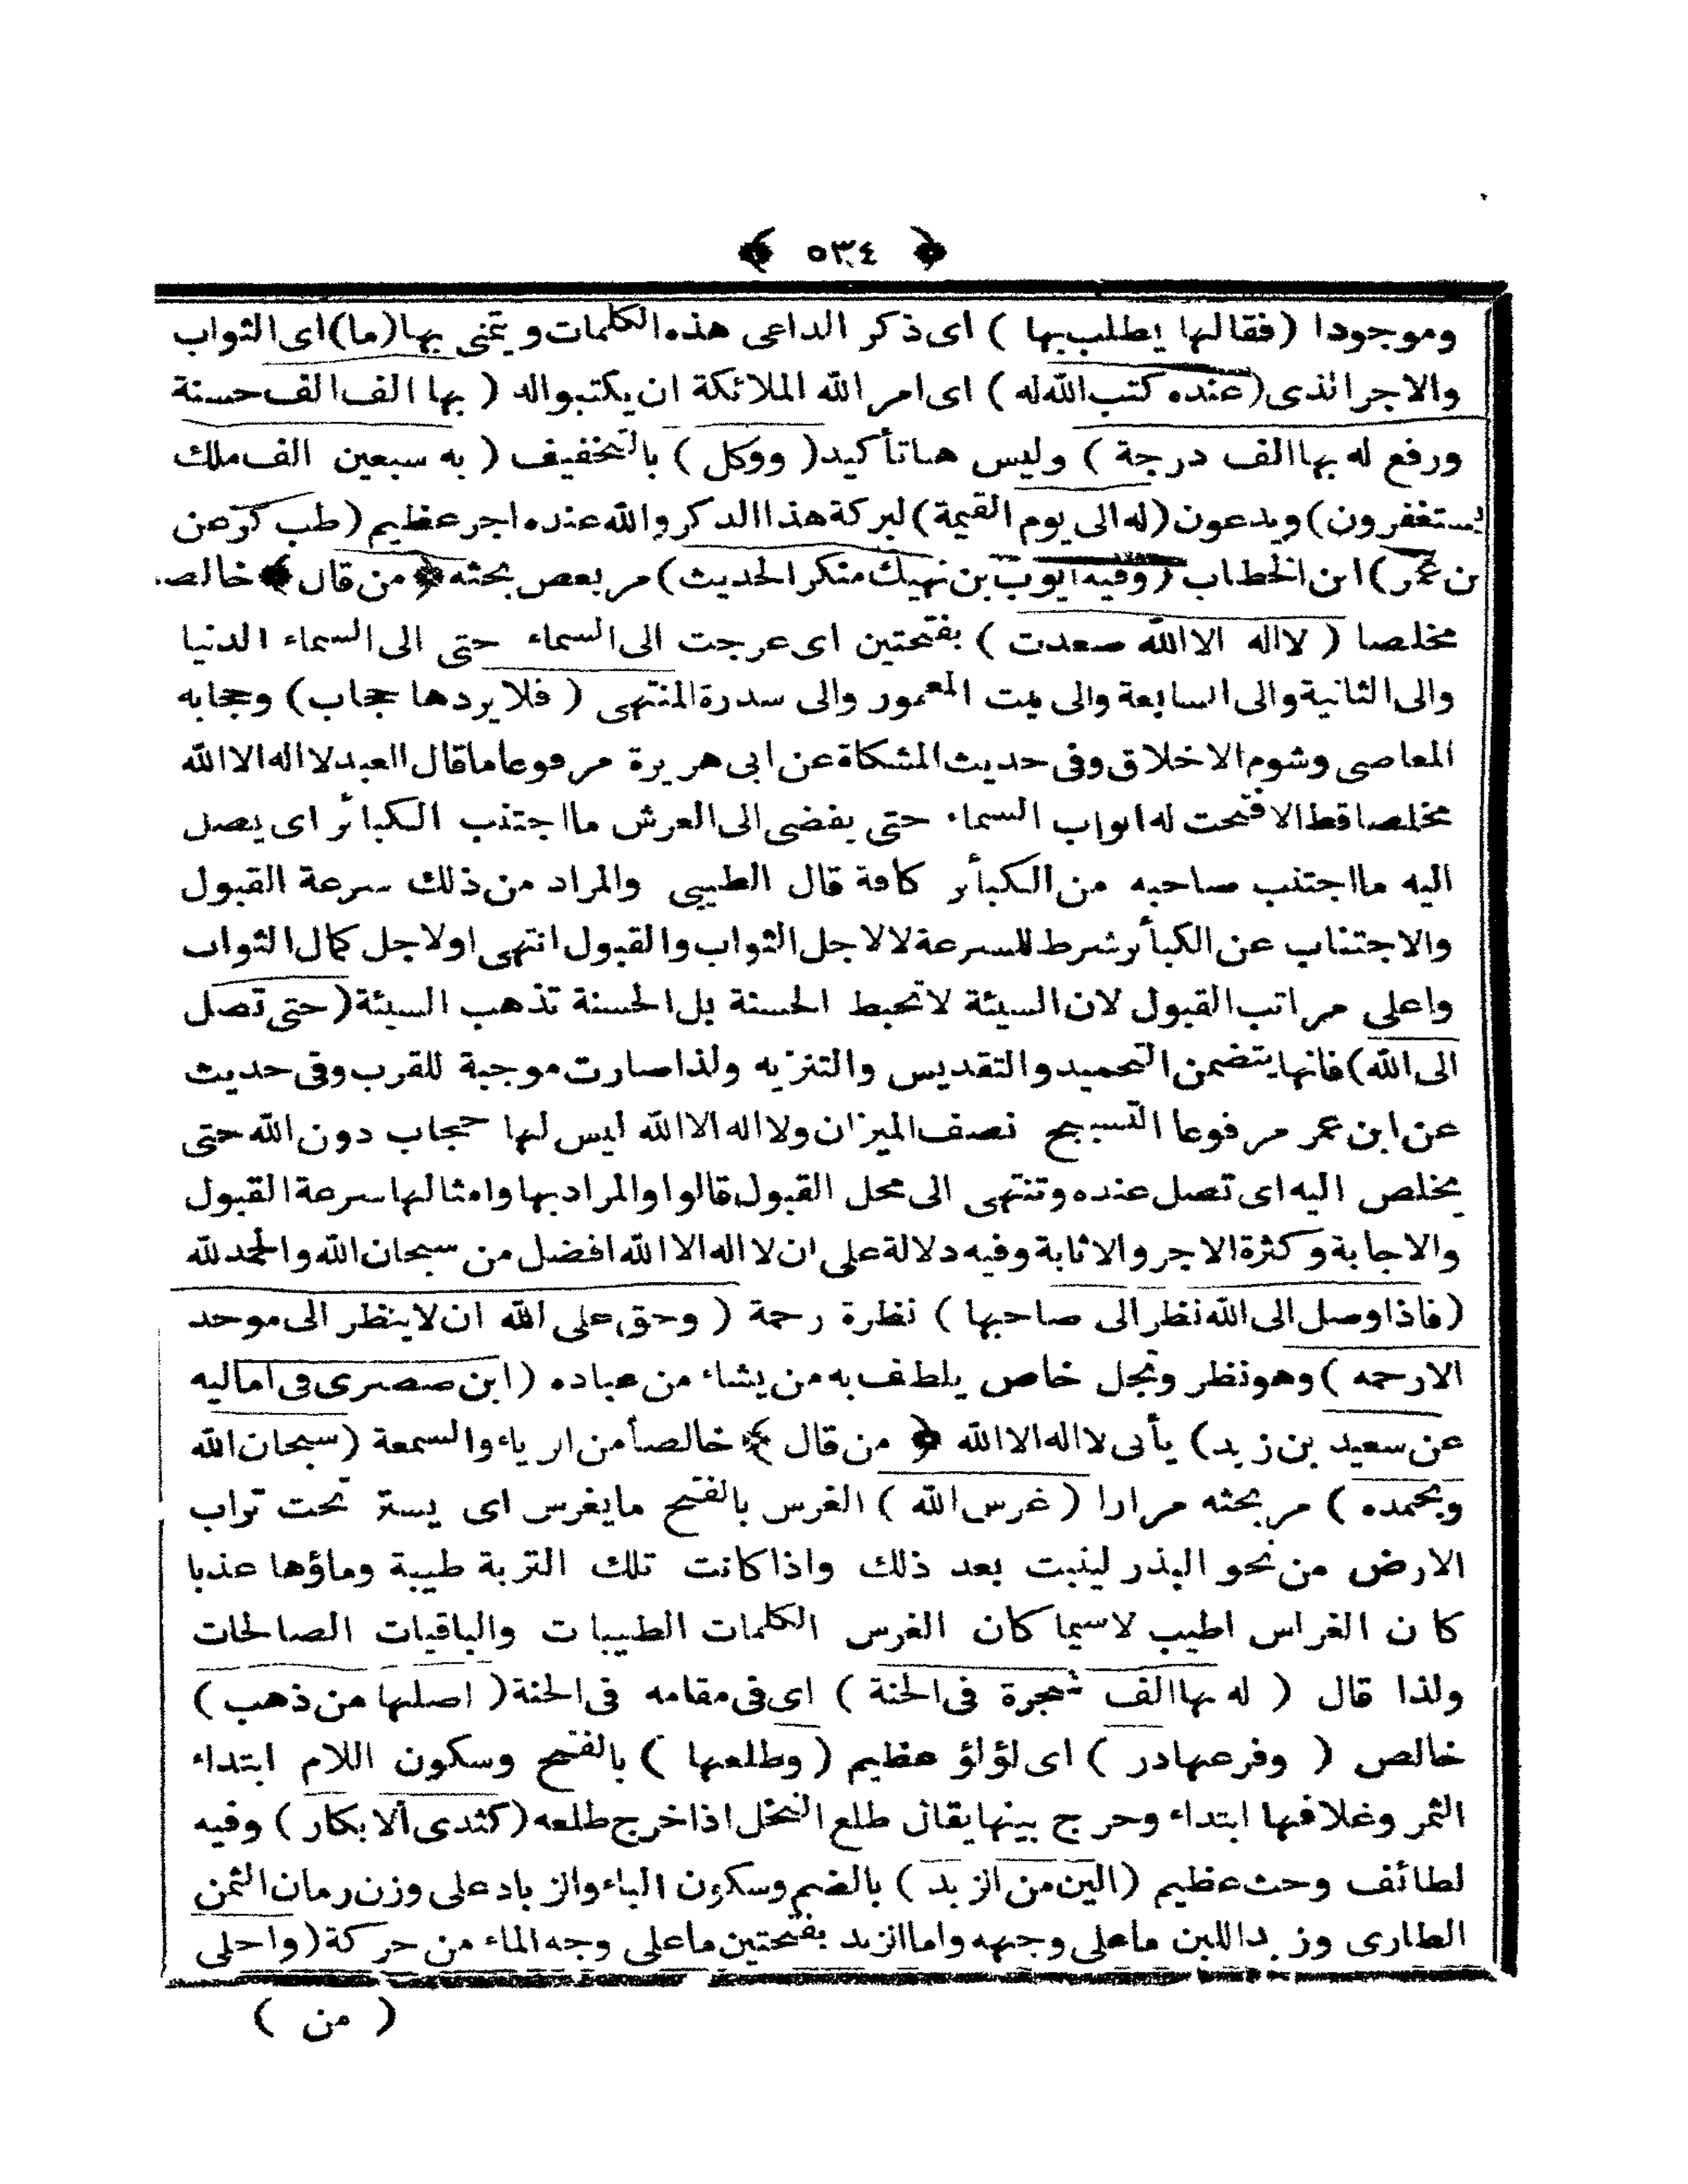 ﴿ ٥٣٤ ﴾
وموجودا (فقالها يطلب بها) اى ذكر الداعى هذه الكلمات ويتمنى بها (ما) اى الثواب
والاجر الذى (عنده كتب الله له) اى امر الله الملائكة ان يكتبوا له (بها الف الف حسنة
ورفع له بها الف درجة) وليس هنا تأكيد (ووكل) بالتخفيف (به سبعين الف ملك
يستغفرون) ويدعون (له الى يوم القيمة) لبركة هذا الذكر والله عنده اجر عظيم (طب كر عن
بن عمر) ابن الخطاب (وفيه ايوب بن نهيك منكر الحديث) مر بعض بحثه ﴿من قال﴾ خالصا
مخلصا (لا اله الا الله صعدت) بفتحتين اى عرجت الى السماء حتى الى السماء الدنيا
والى الثانية والى السابعة والى بيت المعمور والى سدرة المنتهى (فلا يردها حجاب) وحجابه
المعاصى وشوم الاخلاق وفى حديث المشكاة عن ابى هريرة مرفوعا ما قال العبد لا اله الا الله
مخلصا قط الا فتحت له ابواب السماء حتى يفضى الى العرش ما اجتنب الكبائر اى يصل
اليه ما اجتنب صاحبه من الكبائر كافة قال الطيبى والمراد من ذلك سرعة القبول
والاجتناب عن الكبائر شرط للسرعة لا لاجل الثواب والقبول انتهى او لاجل كمال الثواب
واعلى مراتب القبول لان السيئة لا تحبط الحسنة بل الحسنة تذهب السيئة (حتى تصل
الى الله) فانها يتضمن التحميد والتقديس والتنزيه ولذا صارت موجبة للقرب وفى حديث
عن ابن عمر مرفوعا التسبيح نصف الميزان ولا اله الا الله ليس لها حجاب دون الله حتى
يخلص اليه اى تصل عنده وتنتهى الى محل القبول قالوا والمراد بها وامثالها سرعة القبول
والاجابة وكثرة الاجر والاثابة وفيه دلالة على ان لا اله الا الله افضل من سبحان الله والحمد لله
(فاذا وصل الى الله نظر الى صاحبها) نظرة رحمة (وحق على الله ان لا ينظر الى موحد
الا رحمه) وهو نظر وتجل خاص يلطف به من يشاء من عباده (ابن صصرى فى اماليه
عن سعيد بن زيد) يأتى لا اله الا الله ﴿من قال﴾ خالصأ من الرياء والسمعة (سبحان الله
وبحمده) مر بحثه مرارا (غرس الله) الغرس بالفتح ما يغرس اى يستر تحت تراب
الارض من نحو البذر لينبت بعد ذلك واذا كانت تلك التربة طيبة وماؤها عذبا
كان الغراس اطيب لا سيما كان الغرس الكلمات الطيبات والباقيات الصالحات
ولذا قال (له بها الف شجرة فى الجنة) اى فى مقامه فى الجنة (اصلها من ذهب)
خالص (وفرعها در) اى لؤلؤ عظيم (وطلعها) بالفتح وسكون اللام ابتداء
الثمر وغلافها ابتداء وخرج بينها يقال طلع النخل اذا خرج طلعه (كثدى ألابكار) وفيه
لطائف وحث عظيم (الين من الزبد) بالضم وسكون الباء والزباد على وزن رمان الثمن
الطارى وزبد اللبن ما على وجهه واما الزبد بفتحتين ما على وجه الماء من حركة (واحلى
(من)